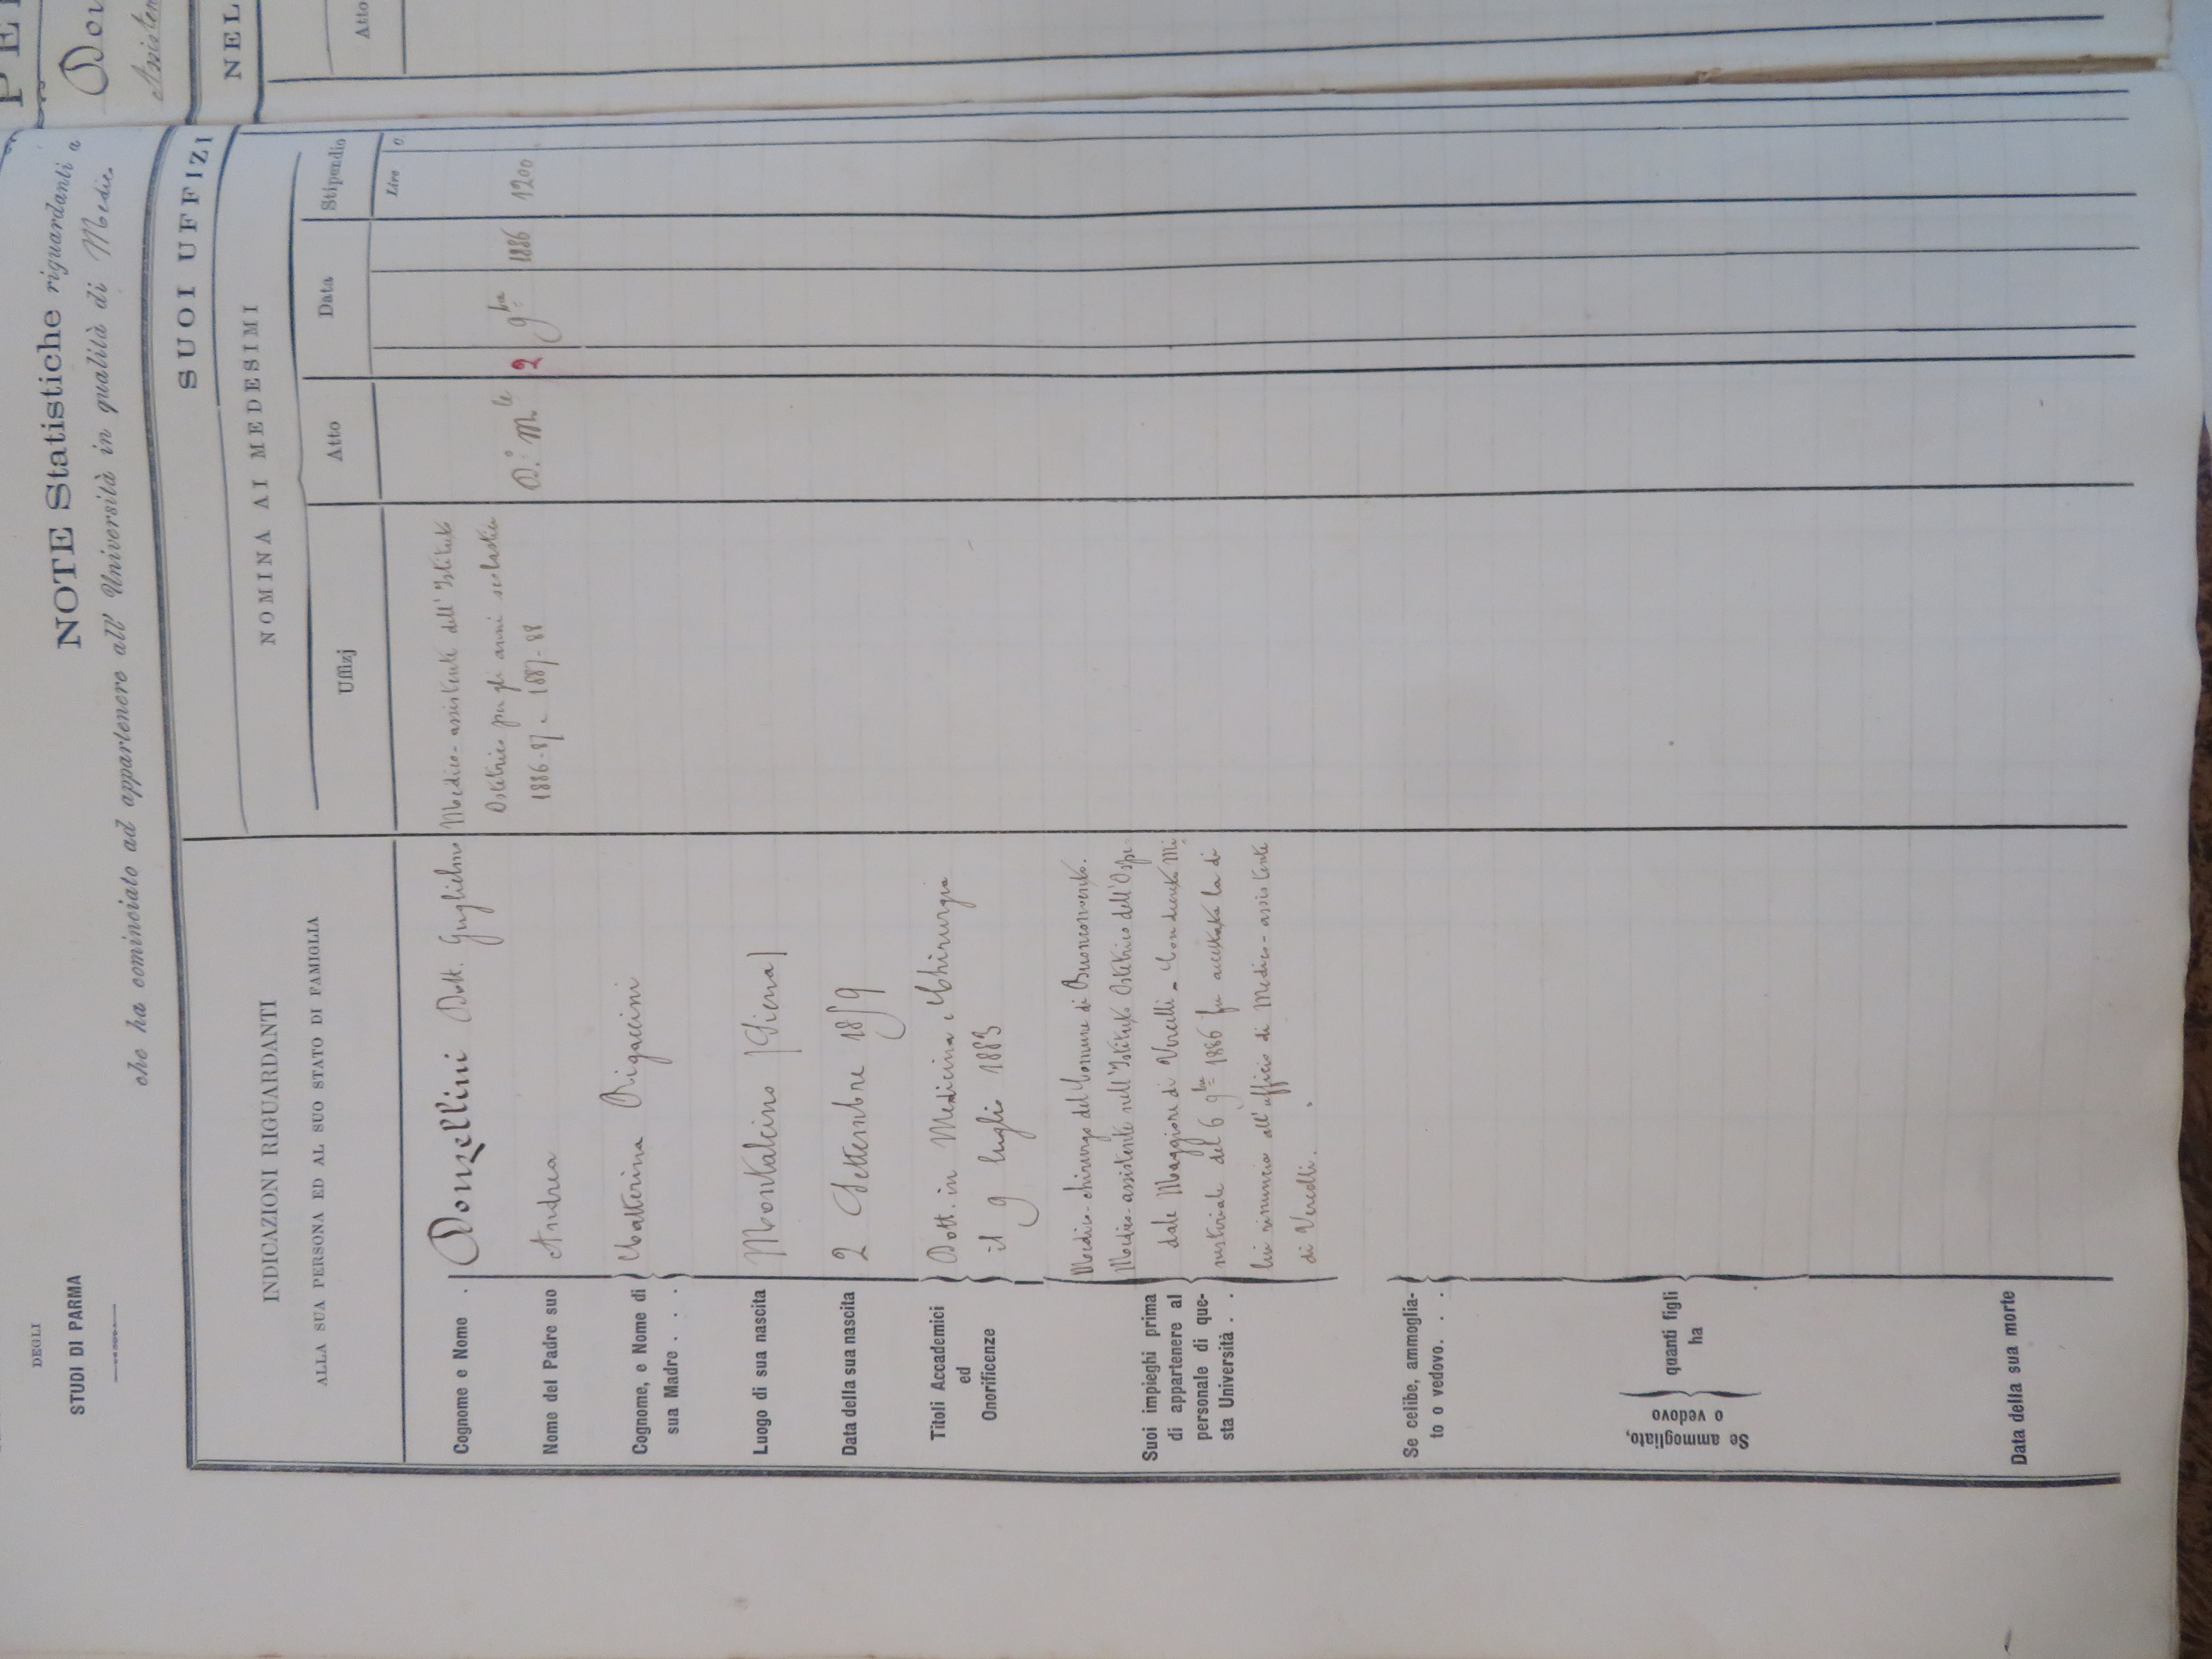 DEGLI
STUDI DI PARMA
NOTE Statistiche riguardanti a
che ha cominciato ad appartenere all' Università in qualità di Medico
INDICAZIONI RIGUARDANTI
ALLA SUA PERSONA ED AL SUO STATO DI FAMIGLIA
SUOI UFFIZI
NOMINA AI MEDESIMI
Uffizj
Atto
Data
Stipendio
Lire
Cognome e Nome . Donzellini Dott. Guglielmo
Nome del Padre suo Andrea
Cognome, e Nome di
sua Madre . . . Catterina Rigaccini
Luogo di sua nascita Montalcino (Siena)
Data della sua nascita 2 Settembre 1859
Titoli Accademici
ed
Onorificenze
Dott. in Medicina e Chirurgia
il 9 luglio 1883
Suoi impieghi prima
di appartenere al
personale di que-
sta Università . .
Medico-chirurgo del Comune di Buonconvento.
Medico-assistente nell'Istituto Ostetrico dell'Ospe-
dale Maggiore di Vercelli - Con decreto Mi
nisteriale del 6 9bre 1886 fu accettata la di
lui rinuncia all'ufficio di Medico-assistente
di Vercelli.
Se celibe, ammoglia-
to o vedovo. . .
Se ammogliato,
o vedovo
quanti figli
ha
Data della sua morte
Medico-assistente dell'Istituto
Ostetrico per gli anni scolastici
1886-87 e 1887-88
D.° M.le
2 9bre 1886
1200
PE
Don
Assisten
NEL
Atto